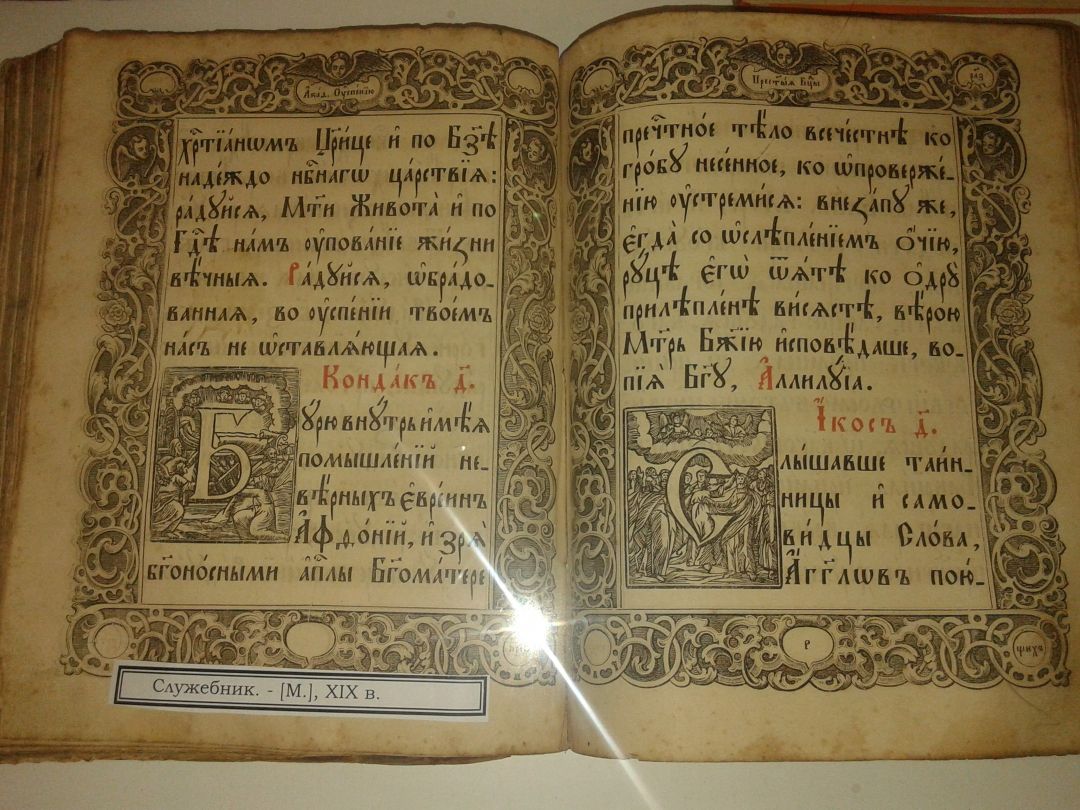 Акаѳ. Оуспенїю
хрⷭ҇тїа́нѡмъ Цр҃и́це и҆ по Бз҃ѣ
наде́ждо нбⷭ҇нагѡ ца́рствїѧ:
ра́дꙋйсѧ, Мт҃и Живота̀ и҆ по
Гдⷭ҇ѣ на́мъ оу҆пова́нїе жи́зни
вѣ́чныѧ. Ра́дꙋйсѧ, ѡ҆бра́до-
ванная, во оу҆спе́нїи твое́мъ
на́съ не ѡ҆ставлѧ́ющаѧ.
Конда́къ д҃.
Бꙋ́рю внꙋ́трь и҆мѣ́ѧ
помышле́нїй не-
вѣ́рныхъ є҆вре́инъ
А҆фѳо́нїй, и҆ зрѧ̀
бг҃оно́сными а҆пⷭ҇лы Бг҃ома́тере
Прест҃ы́ѧ Бцⷣы
пречⷭ҇тно́е тѣ́ло всече́стнѣ ко
гро́бꙋ несе́нное, ко ѡ҆проверже́-
нїю оу҆стреми́сѧ: внеза́пꙋ же,
є҆гда̀ со ѡ҆слѣпле́нїемъ о҆́чїю,
рꙋ́цѣ є҆гѡ̀ ѿѧ́тѣ ко о҆дрꙋ̀
прилѣпле́нѣ висѧ́стѣ, вѣ́рою
Мт҃рь Бж҃їю и҆сповѣ́даше, во-
пїѧ̀ Бг҃ꙋ, А҆ллилꙋ́їа.
І҆́косъ д҃.
Слы́шавше таи́н-
ницы и҆ само-
ви́дцы Сло́ва,
А҆́гг҃лѡвъ пою́-
Служебник. - [М.], XIX в.